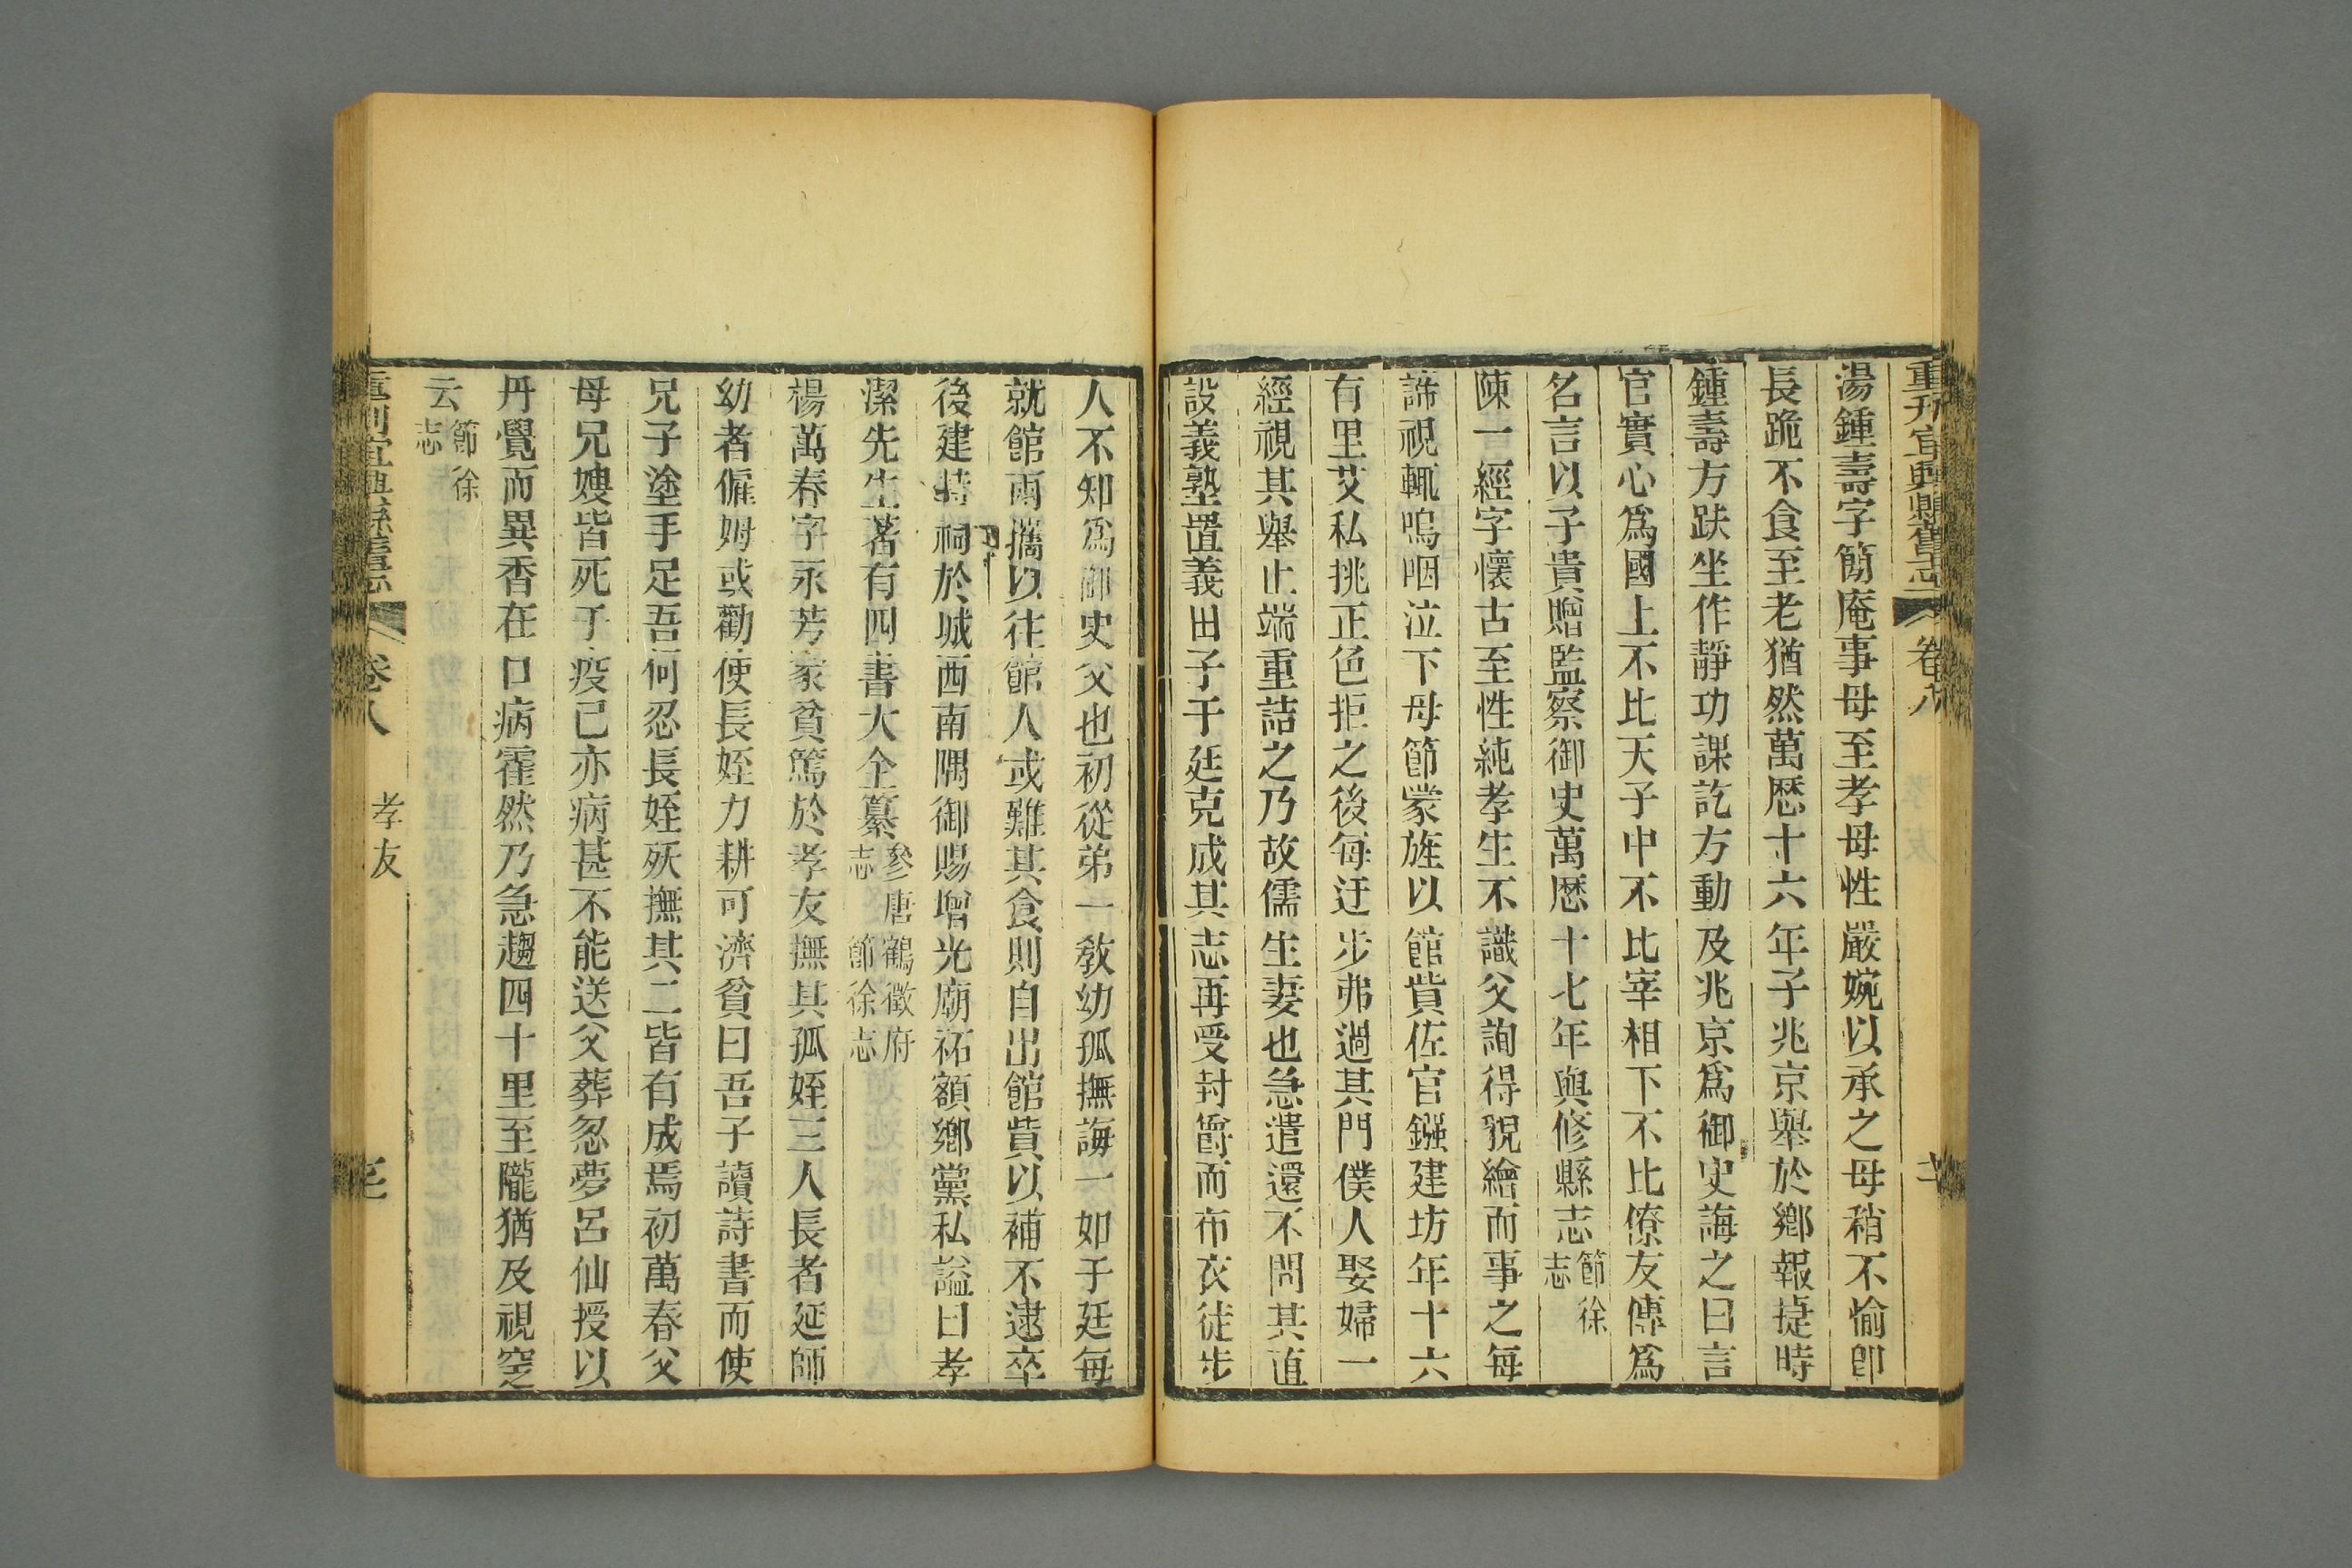 重刊宜興縣舊志 卷八
湯鍾壽字簡庵事母至孝母性嚴婉以承之母稍不愉卽
長跪不食至老猶然萬厯十六年子兆京舉於鄉報捷時
鍾壽方趺坐作靜功課訖方動及兆京爲御史誨之曰言
官實心爲國上不比天子中不比宰相下不比僚友傳爲
名言以子貴贈監察御史萬厯十七年與修縣志節徐志
陳一經字懷古至性純孝生不識父詢得貌繪而事之每
諦視輒嗚咽泣下母節蒙旌以館貲佐官鏹建坊年十六
有里艾私挑正色拒之後每迂步弗過其門僕人娶婦一
經視其舉止端重詰之乃故儒生妻也急遣還不問其直
設義塾置義田子于廷克成其志再受封爵而布衣徒步
人不知爲御史父也初從弟一敎幼孤撫誨一如于廷每
就館兩攜以往館人或難其食則自出館貲以補不逮卒
後建特祠於城西南隅御賜增光廟祏額鄉黨私謚曰孝
潔先生著有四書大全纂參唐鶴徵府志節徐志
楊萬春字永芳家貧篤於孝友撫其孤姪三人長者延師
幼者僱姆或勸使長姪力耕可濟貧曰吾子讀詩書而使
兄子塗手足吾何忍長姪殀撫其二皆有成焉初萬春父
母兄嫂皆死于疫已亦病甚不能送父葬忽夢呂仙授以
丹覺而異香在口病霍然乃急趨四十里至隴猶及視窆
云節徐志
重刊宜興縣舊志 卷八 孝友